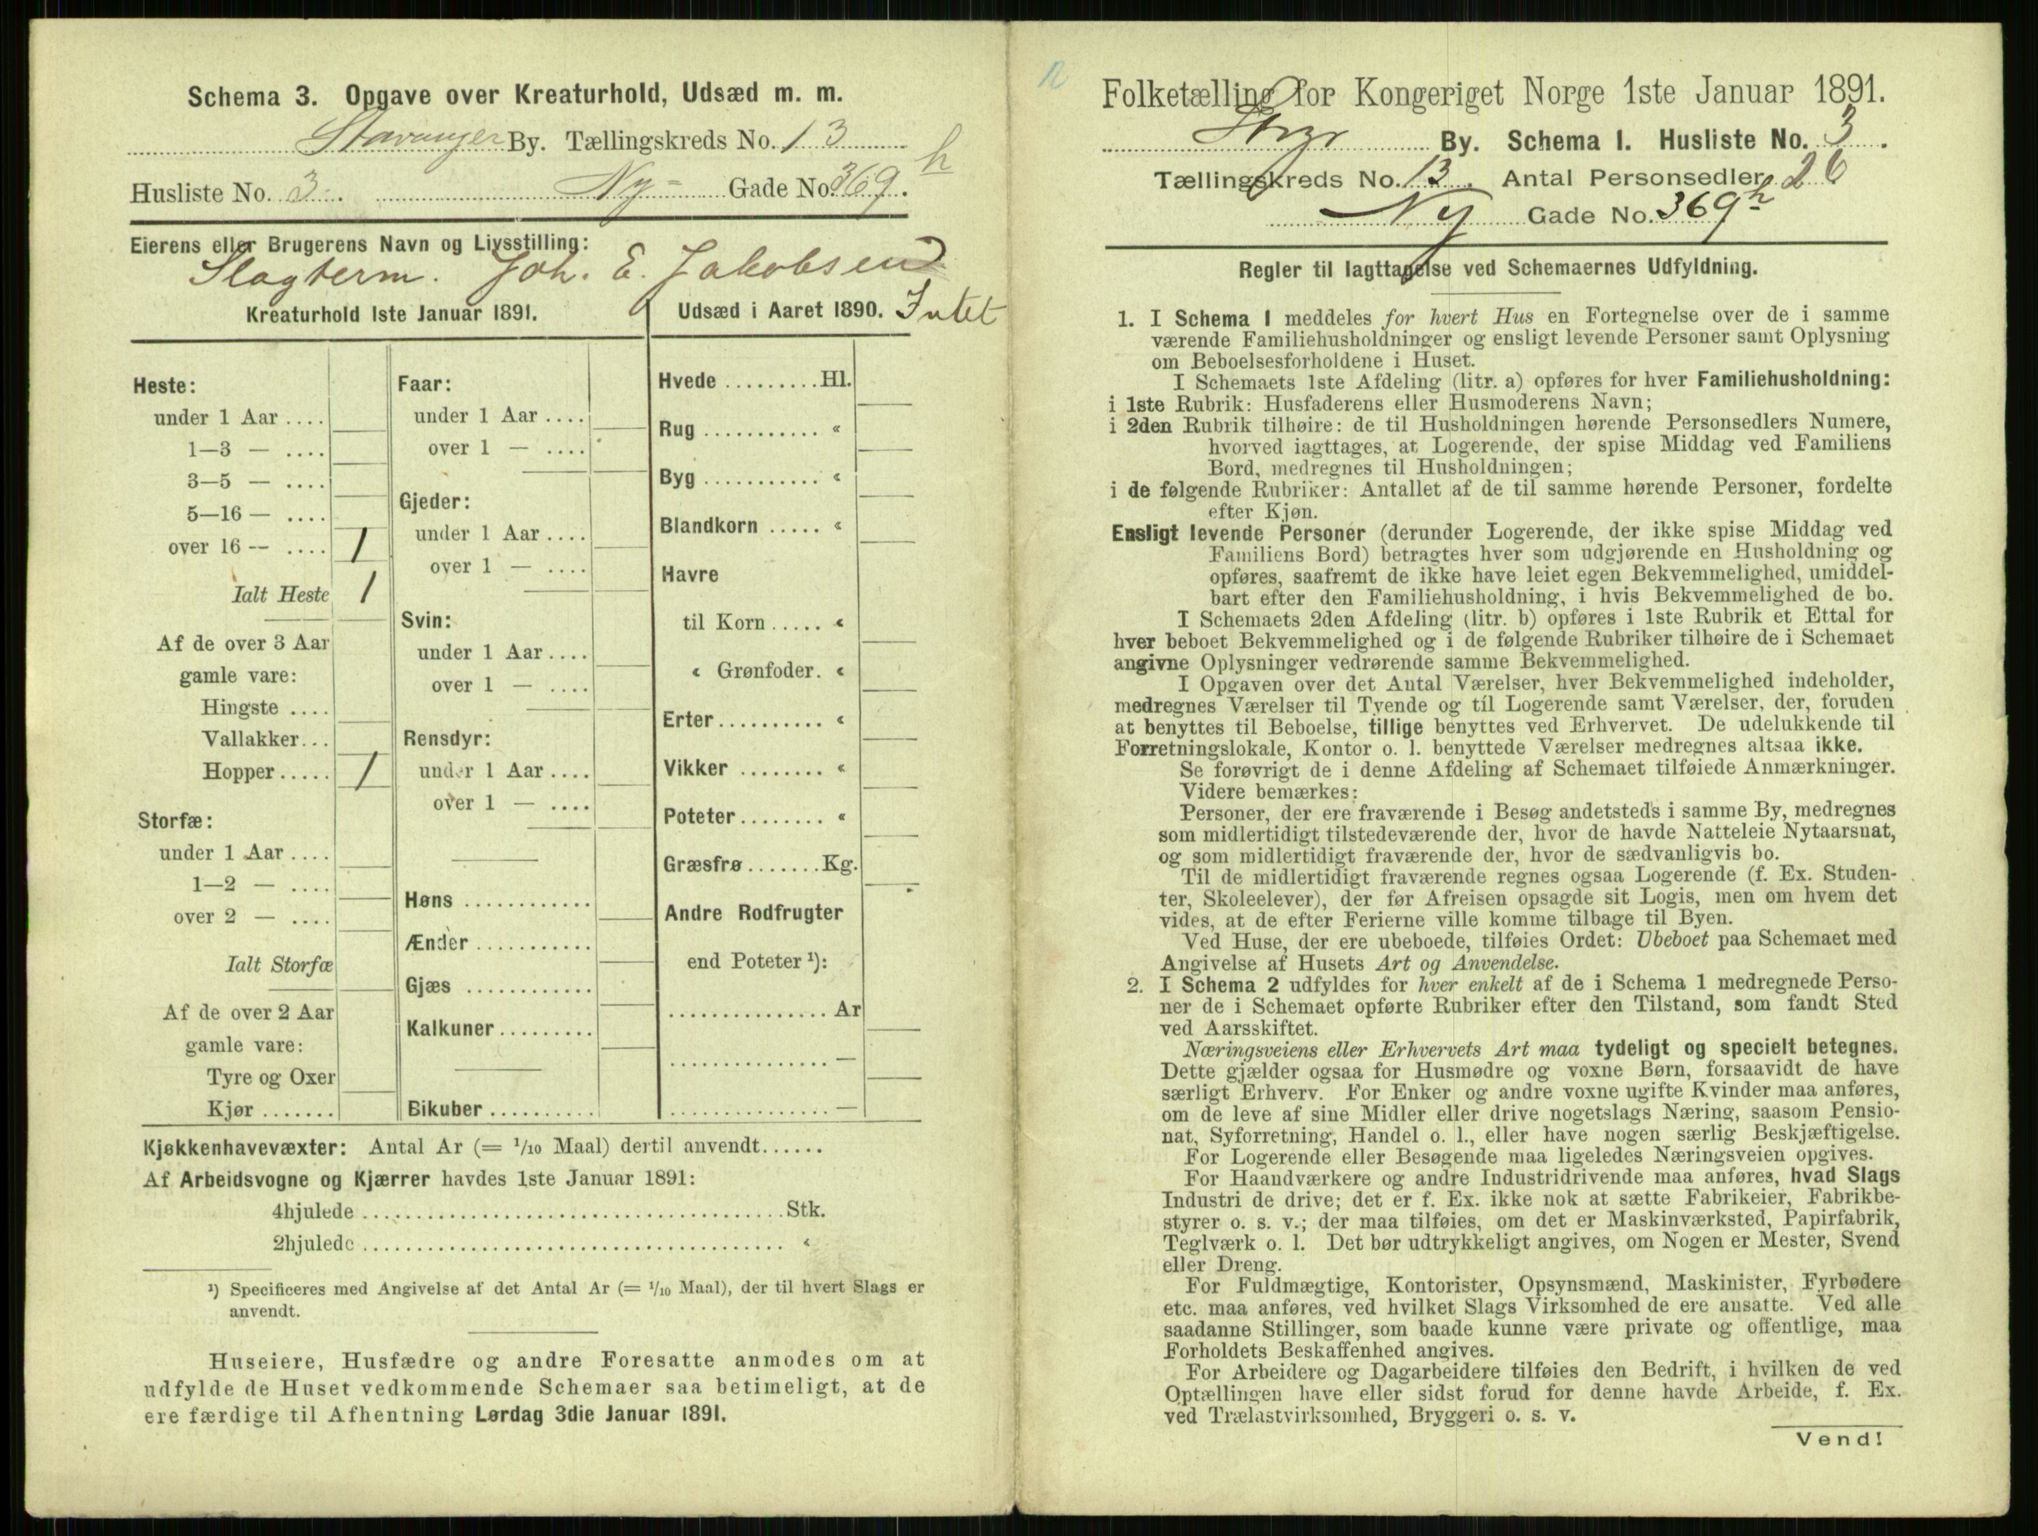 Schema 3. Opgave over Kreaturhold, Udsæd m. m.
Stavanger By. Tællingskreds No. 13
Husliste No. 3. Ny- Gade No. 369. h
Eierens eller Brugerens Navn og Livsstilling:
Slagterm. Joh. E. Jakobsen
Kreaturhold 1ste Januar 1891.
Heste:
under 1 Aar ....
1—3 — ....
3—5 — ....
5—16 — ....
over 16 — .... 1
Ialt Heste 1
Af de over 3 Aar
gamle vare:
Hingste ....
Vallakker...
Hopper..... 1
Storfæ:
under 1 Aar ....
1—2 — ....
over 2 — ....
Ialt Storfæ
Af de over 2 Aar
gamle vare:
Tyre og Oxer
Kjør .......
Faar:
under 1 Aar ....
over 1 — ....
Gjeder:
under 1 Aar ....
over 1 — ....
Svin:
under 1 Aar ....
over 1 — ....
Rensdyr:
under 1 Aar ....
over 1 — ....
Høns ............
Ænder ...........
Gjæs ............
Kalkuner.........
Bikuber ..........
Udsæd i Aaret 1890. Intet
Hvede .........Hl.
Rug ........... «
Byg ........... «
Blandkorn ..... «
Havre
til Korn ..... «
« Grønfoder. «
Erter.......... «
Vikker ........ «
Poteter........ «
Græsfrø.......Kg.
Andre Rodfrugter
end Poteter ¹):
............... Ar
............... —
............... —
Kjøkkenhavevæxter: Antal Ar (= 1/10 Maal) dertil anvendt......
Af Arbeidsvogne og Kjærrer havdes 1ste Januar 1891:
4hjulede ........................................Stk.
2hjulede ........................................ «
¹) Specificeres med Angivelse af det Antal Ar (= 1/10 Maal), der til hvert Slags er
anvendt.
Huseiere, Husfædre og andre Foresatte anmodes om at
udfylde de Huset vedkommende Schemaer saa betimeligt, at de
ere færdige til Afhentning Lørdag 3die Januar 1891.
12
Folketælling for Kongeriget Norge 1ste Januar 1891.
By. Schema I. Husliste No. 3.
Tællingskreds No. 13. Antal Personsedler 26
Ny Gade No. 369 h
Regler til Iagttagelse ved Schemaernes Udfyldning.
1. I Schema 1 meddeles for hvert Hus en Fortegnelse over de i samme
værende Familiehusholdninger og ensligt levende Personer samt Oplysning
om Beboelsesforholdene i Huset.
I Schemaets 1ste Afdeling (litr. a) opføres for hver Familiehusholdning:
i 1ste Rubrik: Husfaderens eller Husmoderens Navn;
i 2den Rubrik tilhøire: de til Husholdningen hørende Personsedlers Numere,
hvorved iagttages, at Logerende, der spise Middag ved Familiens
Bord, medregnes til Husholdningen;
i de følgende Rubriker: Antallet af de til samme hørende Personer, fordelte
efter Kjøn.
Ensligt levende Personer (derunder Logerende, der ikke spise Middag ved
Familiens Bord) betragtes hver som udgjørende en Husholdning og
opføres, saafremt de ikke have leiet egen Bekvemmelighed, umiddel-
bart efter den Familiehusholdning, i hvis Bekvemmelighed de bo.
I Schemaets 2den Afdeling (litr. b) opføres i 1ste Rubrik et Ettal for
hver beboet Bekvemmelighed og i de følgende Rubriker tilhøire de i Schemaet
angivne Oplysninger vedrørende samme Bekvemmelighed.
I Opgaven over det Antal Værelser, hver Bekvemmelighed indeholder,
medregnes Værelser til Tyende og til Logerende samt Værelser, der, foruden
at benyttes til Beboelse, tillige benyttes ved Erhvervet. De udelukkende til
Forretningslokale, Kontor o. l. benyttede Værelser medregnes altsaa ikke.
Se forøvrigt de i denne Afdeling af Schemaet tilføiede Anmærkninger.
Videre bemærkes:
Personer, der ere fraværende i Besøg andetsteds i samme By, medregnes
som midlertidigt tilstedeværende der, hvor de havde Natteleie Nytaarsnat,
og som midlertidigt fraværende der, hvor de sædvanligvis bo.
Til de midlertidigt fraværende regnes ogsaa Logerende (f. Ex. Studen-
ter, Skoleelever), der før Afreisen opsagde sit Logis, men om hvem det
vides, at de efter Ferierne ville komme tilbage til Byen.
Ved Huse, der ere ubeboede, tilføies Ordet: Ubeboet paa Schemaet med
Angivelse af Husets Art og Anvendelse.
2. I Schema 2 udfyldes for hver enkelt af de i Schema 1 medregnede Perso-
ner de i Schemaet opførte Rubriker efter den Tilstand, som fandt Sted
ved Aarsskiftet.
Næringsveiens eller Erhvervets Art maa tydeligt og specielt betegnes.
Dette gjælder ogsaa for Husmødre og voxne Børn, forsaavidt de have
særligt Erhverv. For Enker og andre voxne ugifte Kvinder maa anføres,
om de leve af sine Midler eller drive nogetslags Næring, saasom Pensio-
nat, Syforretning, Handel o. l., eller have nogen særlig Beskjæftigelse.
For Logerende eller Besøgende maa ligeledes Næringsveien opgives.
For Haandværkere og andre Industridrivende maa anføres, hvad Slags
Industri de drive; det er f. Ex. ikke nok at sætte Fabrikeier, Fabrikbe-
styrer o. s. v.; der maa tilføies, om det er Maskinværksted, Papirfabrik,
Teglværk o. l. Det bør udtrykkeligt angives, om Nogen er Mester, Svend
eller Dreng.
For Fuldmægtige, Kontorister, Opsynsmænd, Maskinister, Fyrbødere
etc. maa anføres, ved hvilket Slags Virksomhed de ere ansatte. Ved alle
saadanne Stillinger, som baade kunne være private og offentlige, maa
Forholdets Beskaffenhed angives.
For Arbeidere og Dagarbeidere tilføies den Bedrift, i hvilken de ved
Optællingen have eller sidst forud for denne havde Arbeide, f. Ex.
ved Trælastvirksomhed, Bryggeri o. s. v.
Vend!